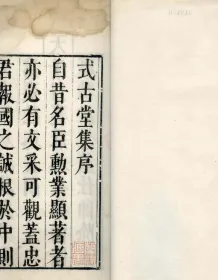 式古堂集序
自昔名臣勲業顯著者
亦必有文采可觀蓋忠
君報國之誠根於中則